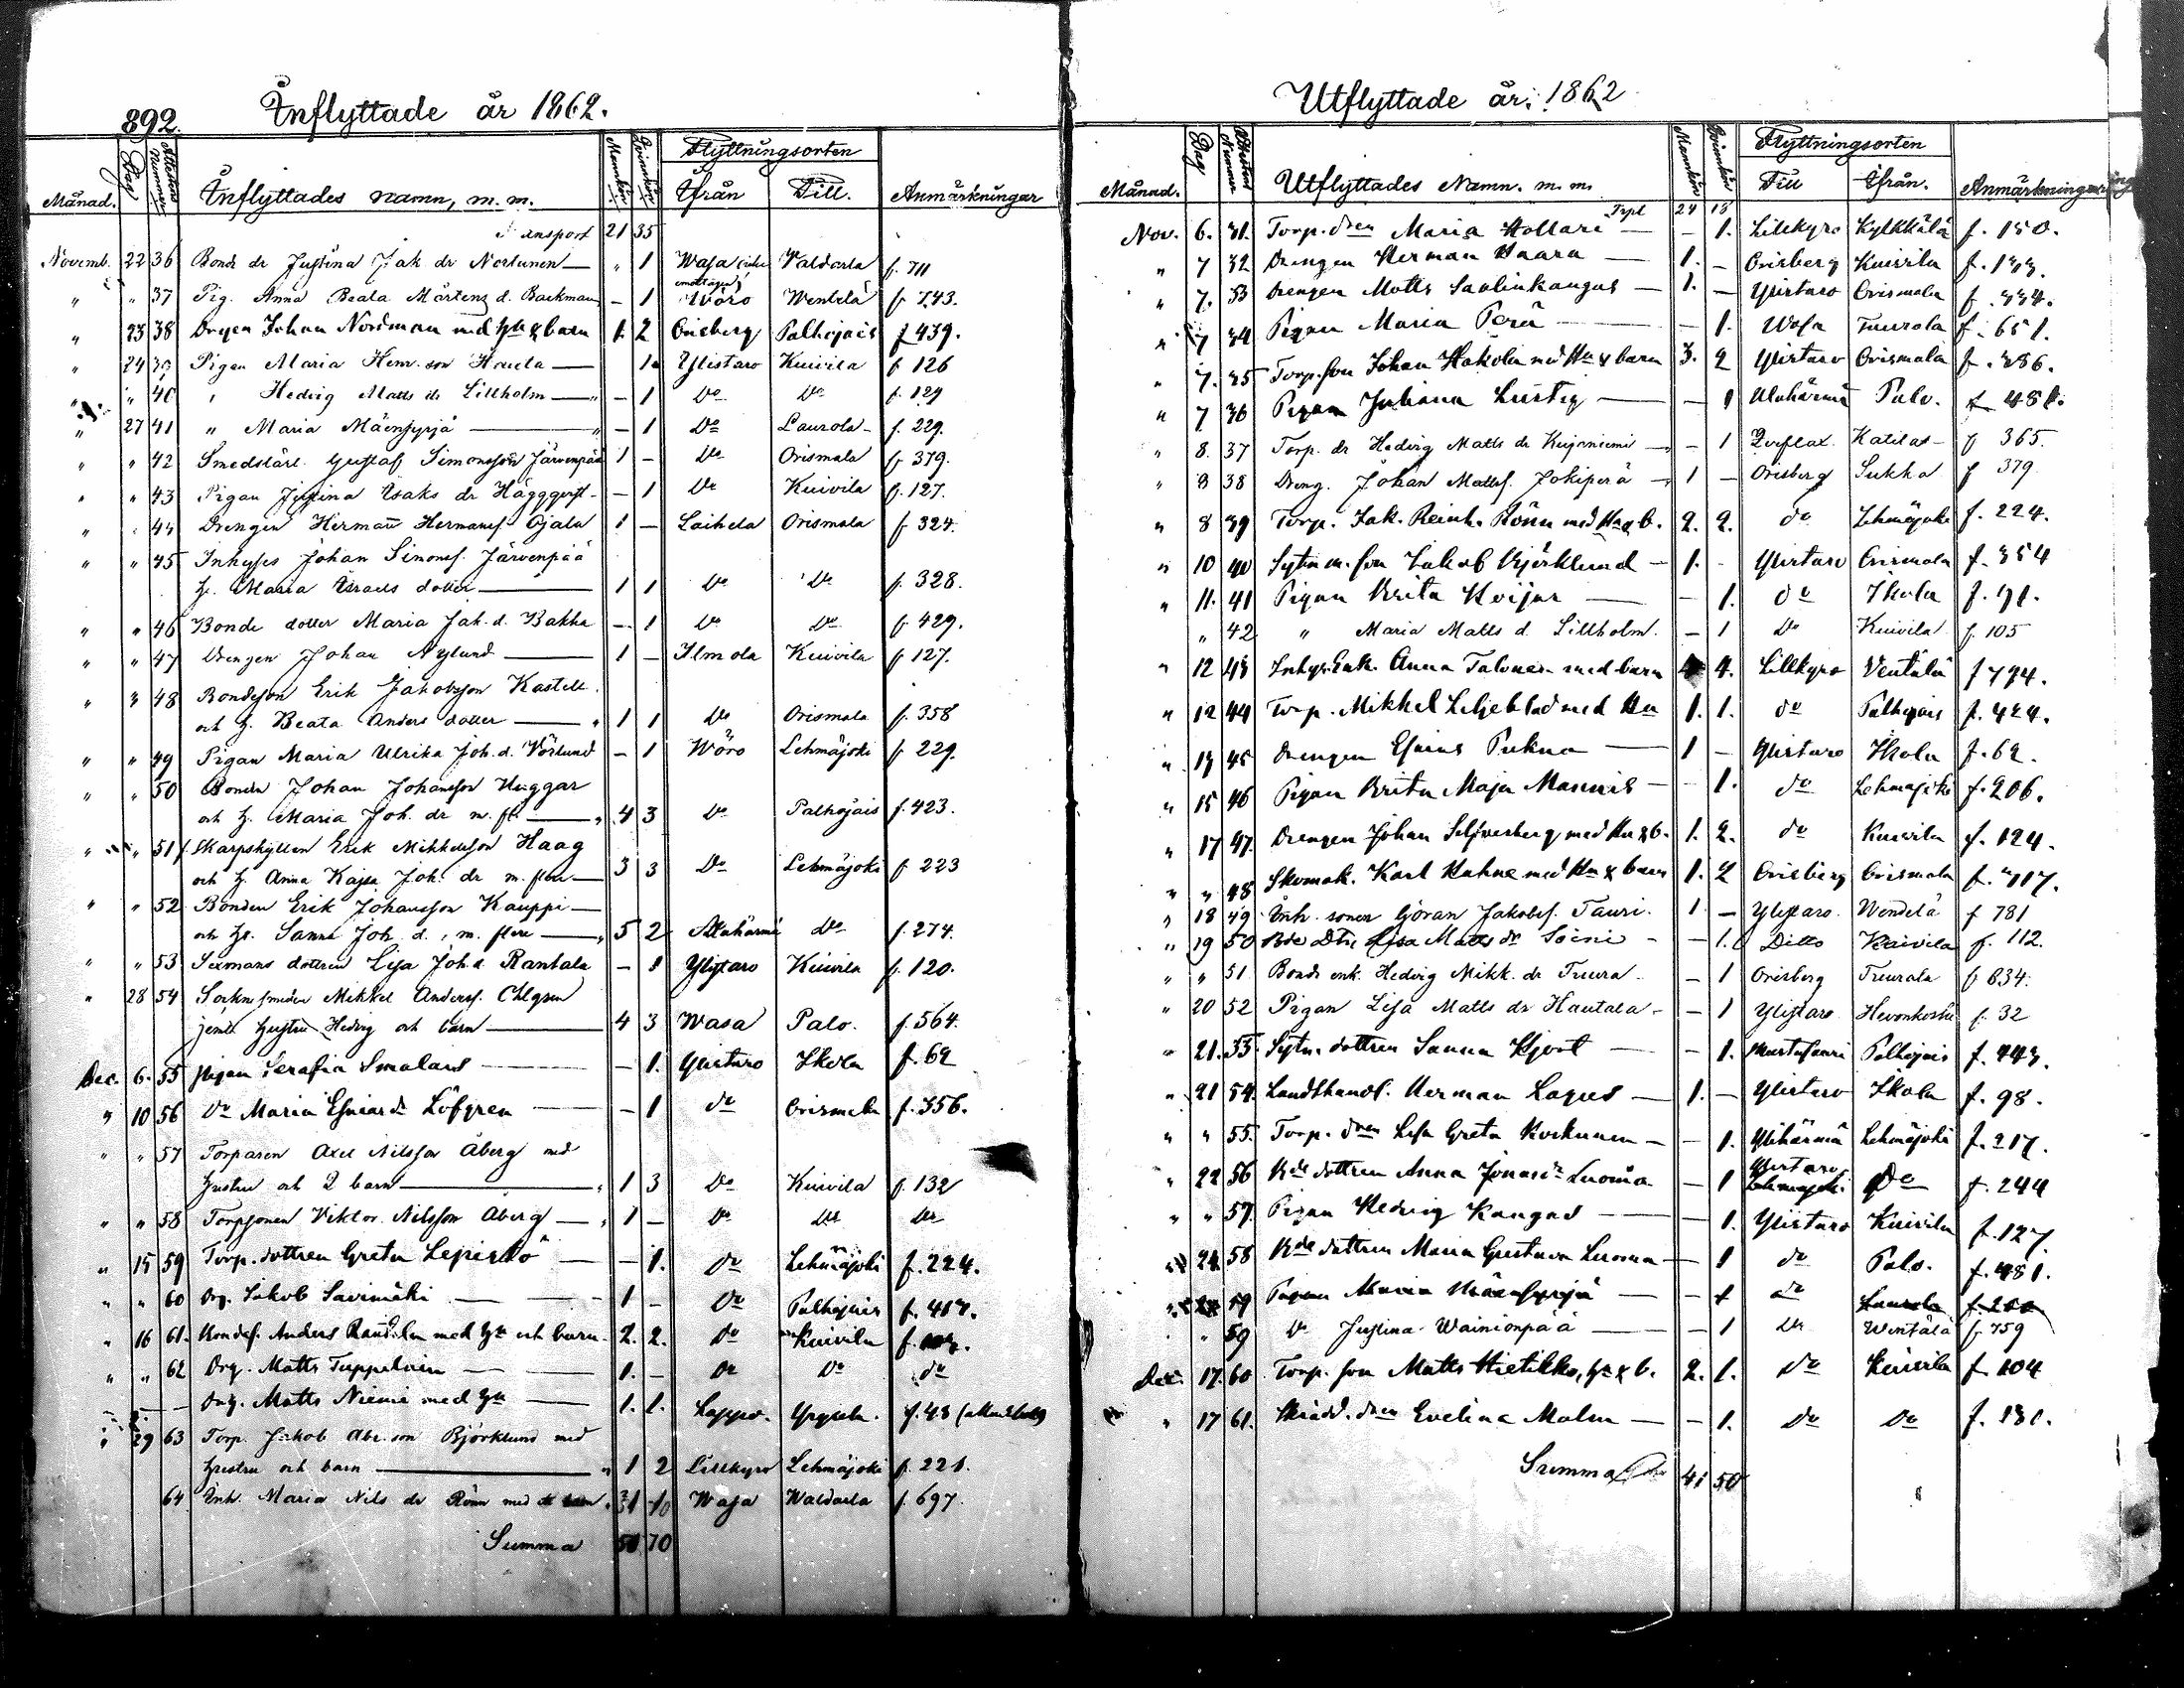 892.
Inflyttade år 1862.
Månad. Dag Attestens Nummer Inflyttades namn, m. m. Mankön Qvinkön Flyttningsorten Ifrån Till. Anmärkningar
Transport 21 35
Novemb. 22 36 Bonde dr Justina Jak. dr — " 1 Wasa Waldarla f. 711
" " 37 Pig. Anna Beata Mårtens d. Backman — 1 Wöro Wentelä f. 743.
" 23 38 Johan Nordman med hu & barn 1. 2 Orisberg Palhojais f. 439.
" 24 39 Pigan Maria Henr. son — 1 Ylistaro Kuivila f. 126
" " 40 " Hedvig Matts dr Lillholm — 1 Do Do f. 129
" 27 41 " Maria Mäensyrjä — 1 Do Laurola f. 229.
" " 42 Gustaf Simonsson Järvenpää 1 — Do Orismala f. 379.
" " 43 Pigan Justina Isaks dr — 1 Do Kuivila f. 127.
" " 44 Drengen Herman Hermans. Ojala 1 — Laihela Orismala f. 324.
" " 45 Inhyses Johan Simons. Järvenpää
h. Maria dotter — 1 1 Do Do f. 328.
" " 46 Bonde dotter Maria Jak. d. Bakka — 1 Do Do f. 429.
" " 47 Drengen Johan Nylund — 1 — Ilmola Kuivila f. 127.
" " 48 Bondeson Erik Jakobsson Kastell
och h. Beata Anders dotter — 1 1 Do Orismala f. 358
" " 49 Pigan Maria Ulrika Joh. d. — 1 Wöro Lehmäjoki f. 229.
" " 50 Bonden Johan Johansson Huggar
och h. Maria Joh. dr m. fl. — 4 3 Do Palhojais f. 423.
" " 51 Skarpskytten Erik Mikkelsson Haag
och h. Anna Kajsa Joh. dr m. flere — 3 3 Do Lehmäjoki f. 223
" " 52 Bonden Erik Johansson Kauppi —
och h. Sanna Joh. d., m. flere — 5 2 Alahärmä Do f. 274.
" " 53 Sexmans dottren Lisa Joh. d. Rantala — 1 Ylistaro Kuivila f. 120.
" 28 54 Mikkel Anders.
jemte hustru Hedvig och barn — 4 3 Wasa Palo. f. 564.
Dec. 6. 55 Pigan Serafia — 1. Ylistaro Ikola f. 62
" 10 56 Do Maria Löfgren — 1 do Orismala f. 356.
" " 57 Torparen Axel Nilsson Åberg med
hustru och 2 barn — 1 3 Do Kuivila f. 132
" " 58 Torpsonen Viktor Nilsson Åberg — 1 — Do Do Do
" 15 59 Torp. dottren Greta Lepistö — 1. Do Lehmäjoki f. 224.
" " 60 Drg. Jakob Savimäki — 1 — Do Palhojais f. 417.
" 16 61. Anders med hu och barn. 2. 2. do Kuivila
" " 62 Drg. Matts — 1. — Do Do do
— — Drg. Matts Niemi med hu — 1. 1. Lappo. f. 48
" 29 63 Torp. Jakob Abr. son Björklund med
hustru och barn — 1 2 Lillkyro Lehmäjoki f. 221.
64 Inh. Maria Nils dr Rönn med Wasa Waldarla f. 697.
Summa 50 70
Utflyttade år. 1862
Månad. Dag Nummer Utflyttades Namn. m. m. Mankön Qvinkön Flyttningsorten Till Ifrån. Anmärkningar
24 18
Nov. 6. 31. Torp. dren Maria Hollari — 1. Lillkyro Kylkkälä f. 150.
" 7 32 Drengen Herman Haara — 1. — Orisberg Kuivila
" 7. 33 Drengen Matts Saulinkangas — 1. — Ylistaro Orismala f. 334.
" 7 34 Pigan Maria Perä — 1. Wasa Tuurala f. 651.
" 7. 35 Torp. son Johan Hakola med Hu & barn 3. 2 Ylistaro Orismala f. 386.
" 7 36 Pigan Juliana Lustig — 1 Alahärmä Palo.
" 8. 37 Torp. dr Hedvig Matts dr Kujaniemi — 1 Qveflax Katilas f. 365.
" 8 38 Dreng. Johan Matts. Jokiperä — 1 — Orisberg Sukka f. 379
" 8 39 Torp. Jak. Reinh. Rönn med Hu & b. 2. 2. do Lehmäjoki f. 224.
" 10 40 Sytn. m. son Jakob Björklund — 1. — Ylistaro Orismala f. 354
" 11. 41 Pigan Brita — 1. do Ikola
" " 42 " Maria Matts d. Lillholm. — 1 Do Kuivila f. 105
" 12 43 Inhys. Enk. Anna Talonen med barn 4. Lillkyro Ventälä f. 774.
" 12 44 Torp. Mikkel Liljeblad med Hu 1. 1. do Palhojais f. 424.
" 13 45 Drengen Esaias — 1 — Ylistaro Ikola f. 62.
" 15 46 Pigan Brita Maja — 1. do Lehmäjoki f. 206.
" 17 47. Drengen Johan Silfverberg med Hu & b. 1. 2. do Kuivila f. 124.
" " 48 Skomak. Karl Hahne med Hu & barn 1. 2 Orisberg Orismala
" 18 49 Inh. sonen Göran Jakobs. Tauri. 1 — Ylistaro Wendelä f. 781
" 19 50 Bde dtr Lisa Matts dr Soini — 1. Ditto Kuivila f. 112.
" " 51 Bonde enk. Hedvig Mikk. dr Tuura — 1 Orisberg Tuurala f. 634.
" 20 52 Pigan Lisa Matts dr Hautala — 1 Ylistaro Hevonkoski f. 32
" 21. 53. Sytn. dottren Sanna — 1. Mustasaari Palhojais f. 443.
" 21 54. Landthandl. Herman — 1. — Ylistaro Ikola f. 98.
" " 55. Torp. dren Lisa Greta — 1. Ylihärmä Lehmäjoki f. 217.
" 22 56 Bde dottren Anna Jonas dr Luoma — 1 Ylistaro Do f. 244
" " 57 Pigan Hedvig Kangas — 1. Ylistaro Kuivila f. 127.
" 24 58 Bde dottren Maria Gustava Luoma — 1 do Palo. f. 481.
59 Pigan Maria Mäensyrjä — 1 do Laurola
" 59 Do Justina Wainionpää — 1 Do Wentälä f. 759
Dec. 17. 60 Torp. son Matts Hietikko, hu & b. 2. 1. Do Kuivila f. 104
" 17 61. Skrädd. dren Evelina Malm — 1. Do Do f. 130.
Summa 41 50